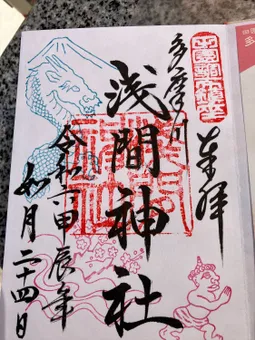 奉拝
多摩川
浅間神社
令和六甲辰年
如月二十四日